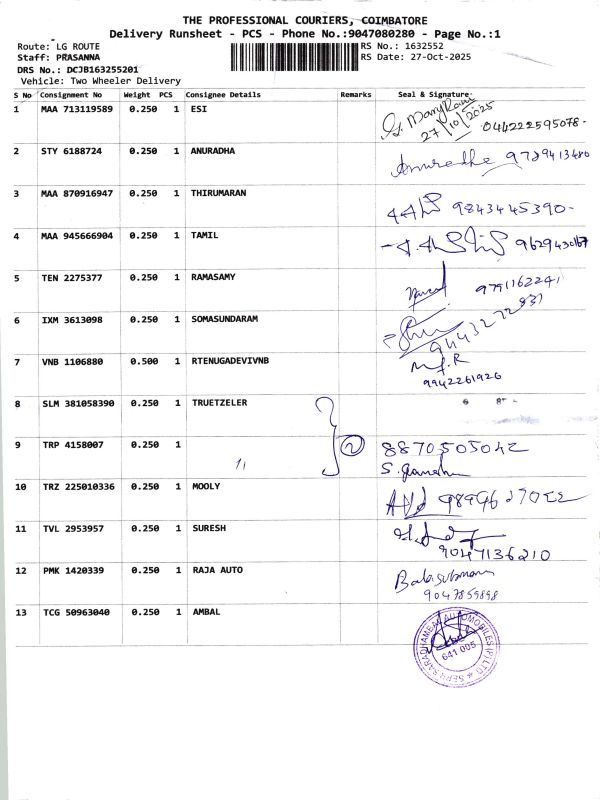 THE PROFESSIONAL COURIERS, COIMBATORE
Delivery Runsheet - PCS - Phone No.:9047080280 - Page No.:1
Route: LG ROUTE RS No.: 1632552
Staff: PRASANNA RS Date: 27-Oct-2025
DRS No.: DCJB163255201
Vehicle: Two Wheeler Delivery
S No Consignment No Weight PCS Consignee Details Remarks Seal & Signature
1 MAA 713119589 0.250 1 ESI
27/10/2025 044222595078
2 STY 6188724 0.250 1 ANURADHA Anuradha 9789413480
3 MAA 870916947 0.250 1 THIRUMARAN 9843445390
4 MAA 945666904 0.250 1 TAMIL 9629430167
5 TEN 2275377 0.250 1 RAMASAMY 9791162241
6 IXM 3613098 0.250 1 SOMASUNDARAM 9443272837
7 VNB 1106880 0.500 1 RTENUGADEVIVNB
9942261926
8 SLM 381058390 0.250 1 TRUETZELER
9 TRP 4158007 0.250 1 11 2 8870505042
10 TRZ 225010336 0.250 1 MOOLY
11 TVL 2953957 0.250 1 SURESH
9047136210
12 PMK 1420339 0.250 1 RAJA AUTO Balasubramani
9047859898
13 TCG 50963040 0.250 1 AMBAL
641 005